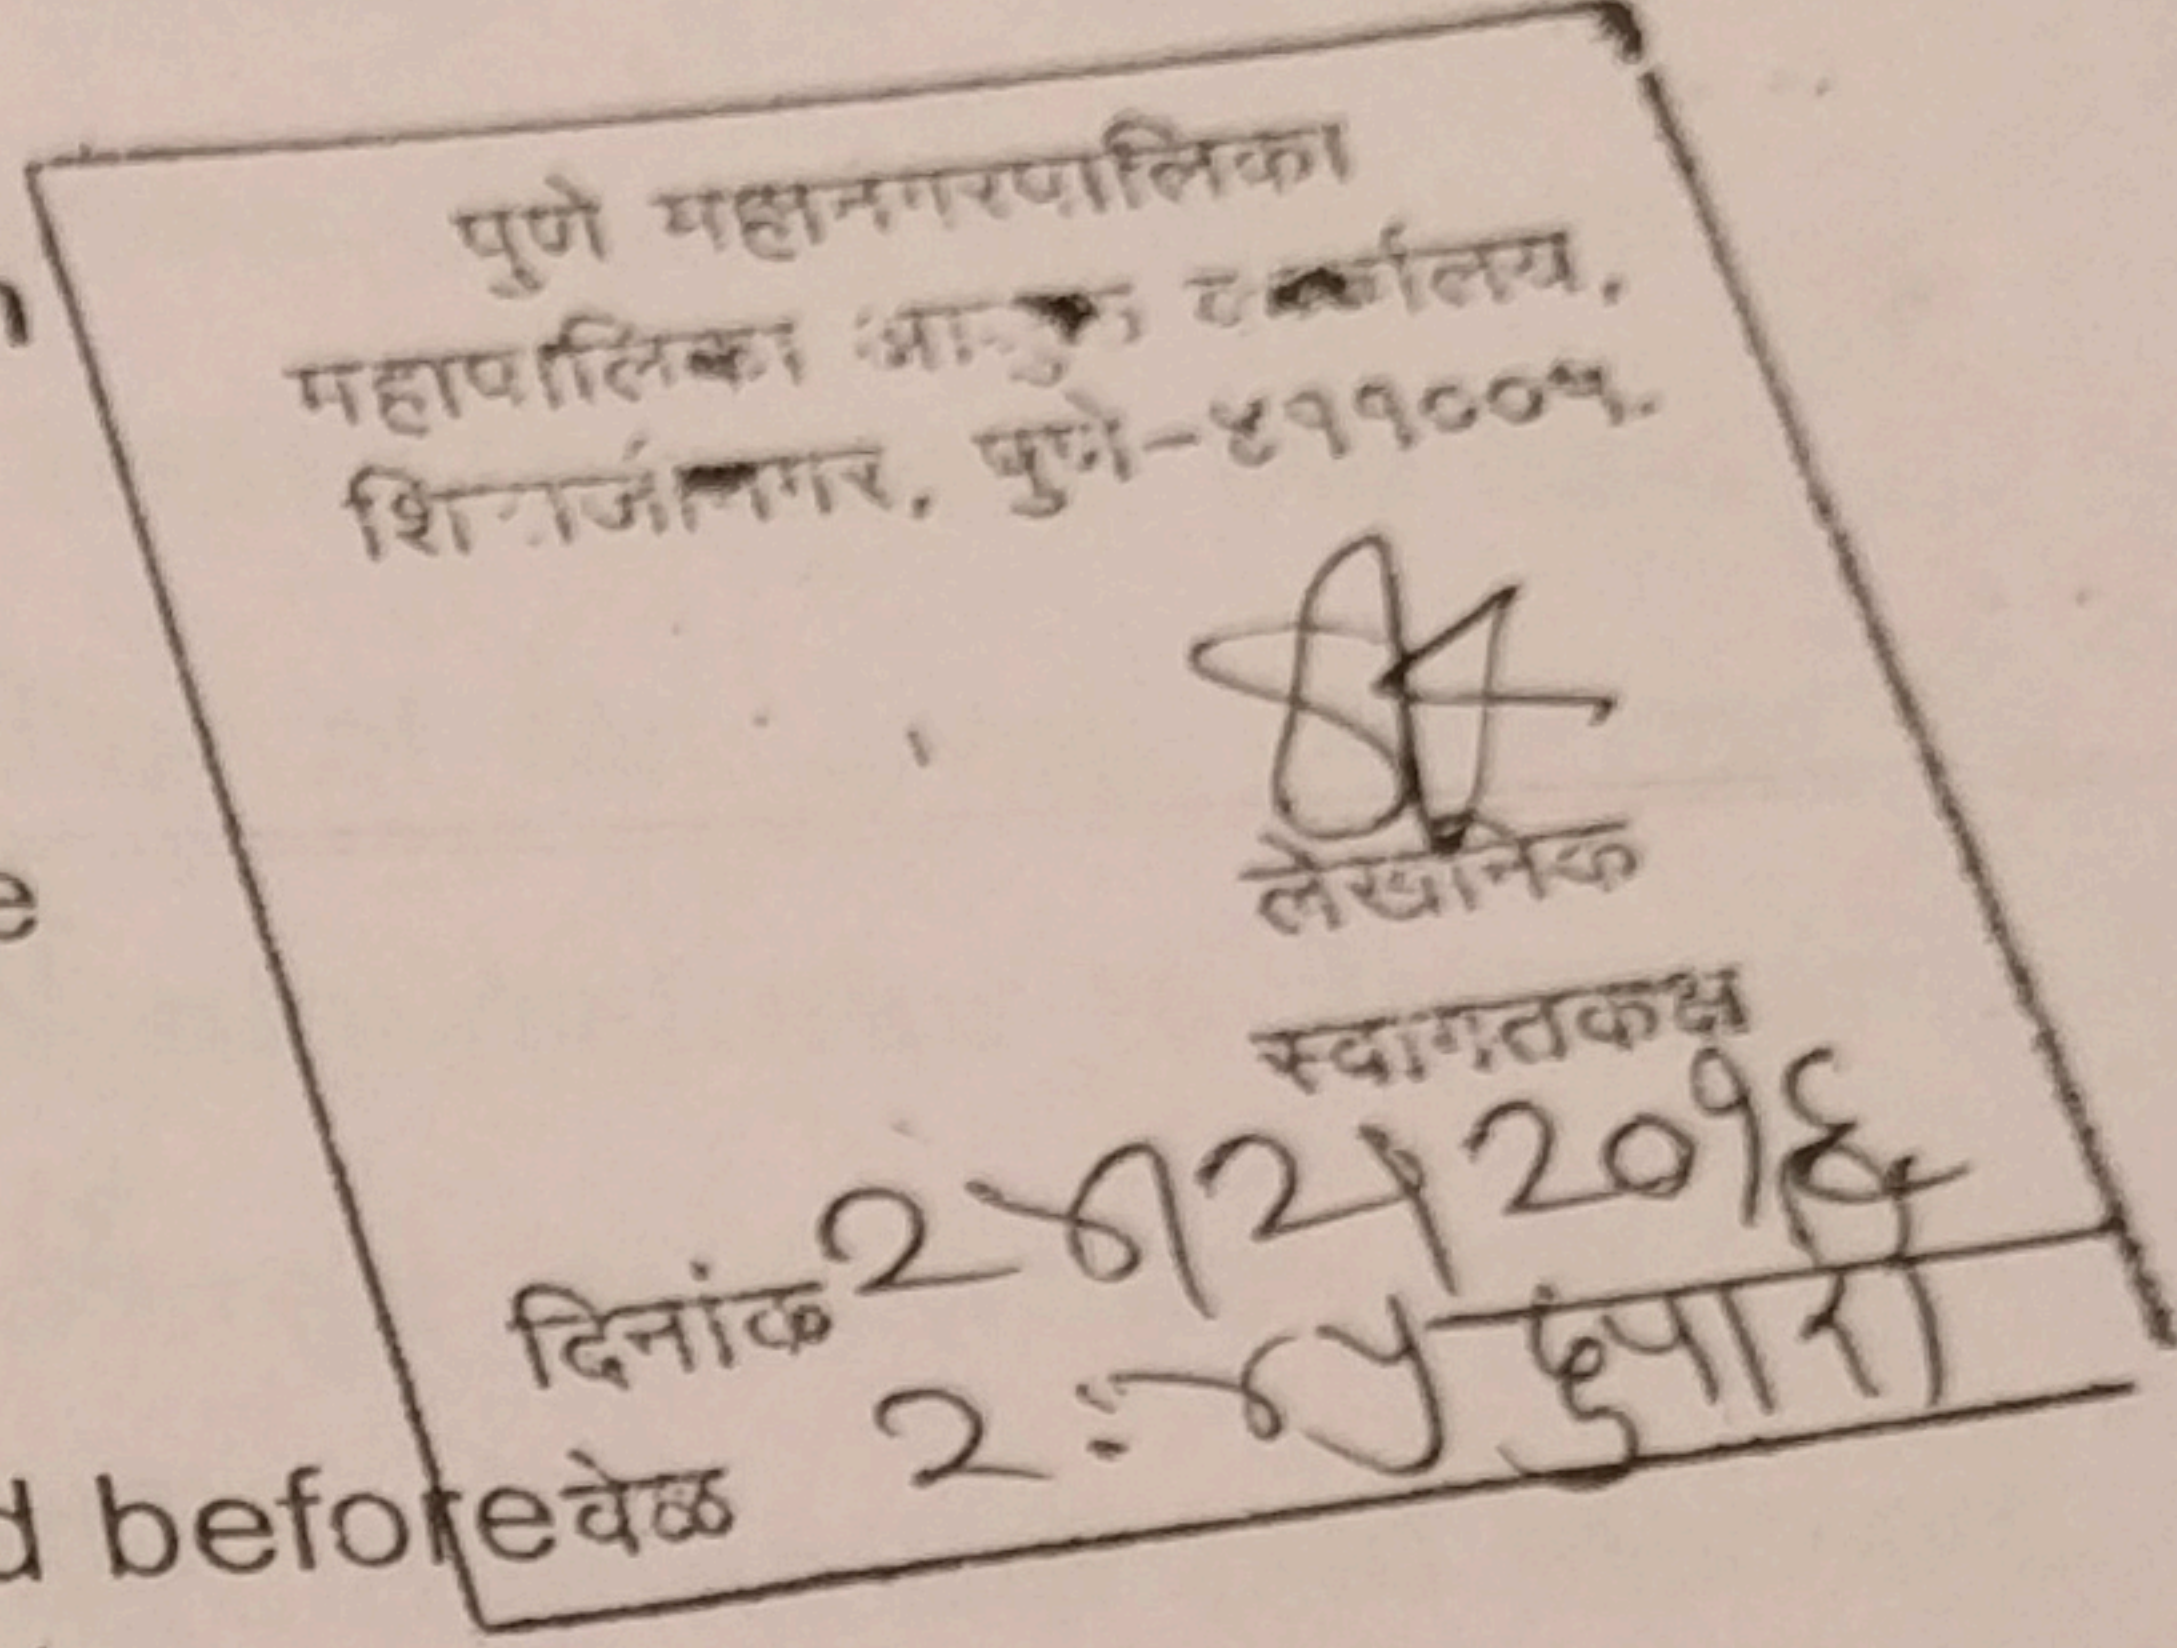 पुणे महानगरपालिका
महापालिका आयुक्त कार्यालय.
शिवाजीनगर, पुणे-४११००५.
लेखनिक
स्वागतकक्ष
दिनांक २५/२/२०१६
वेळ २: दुपारी
d before
e